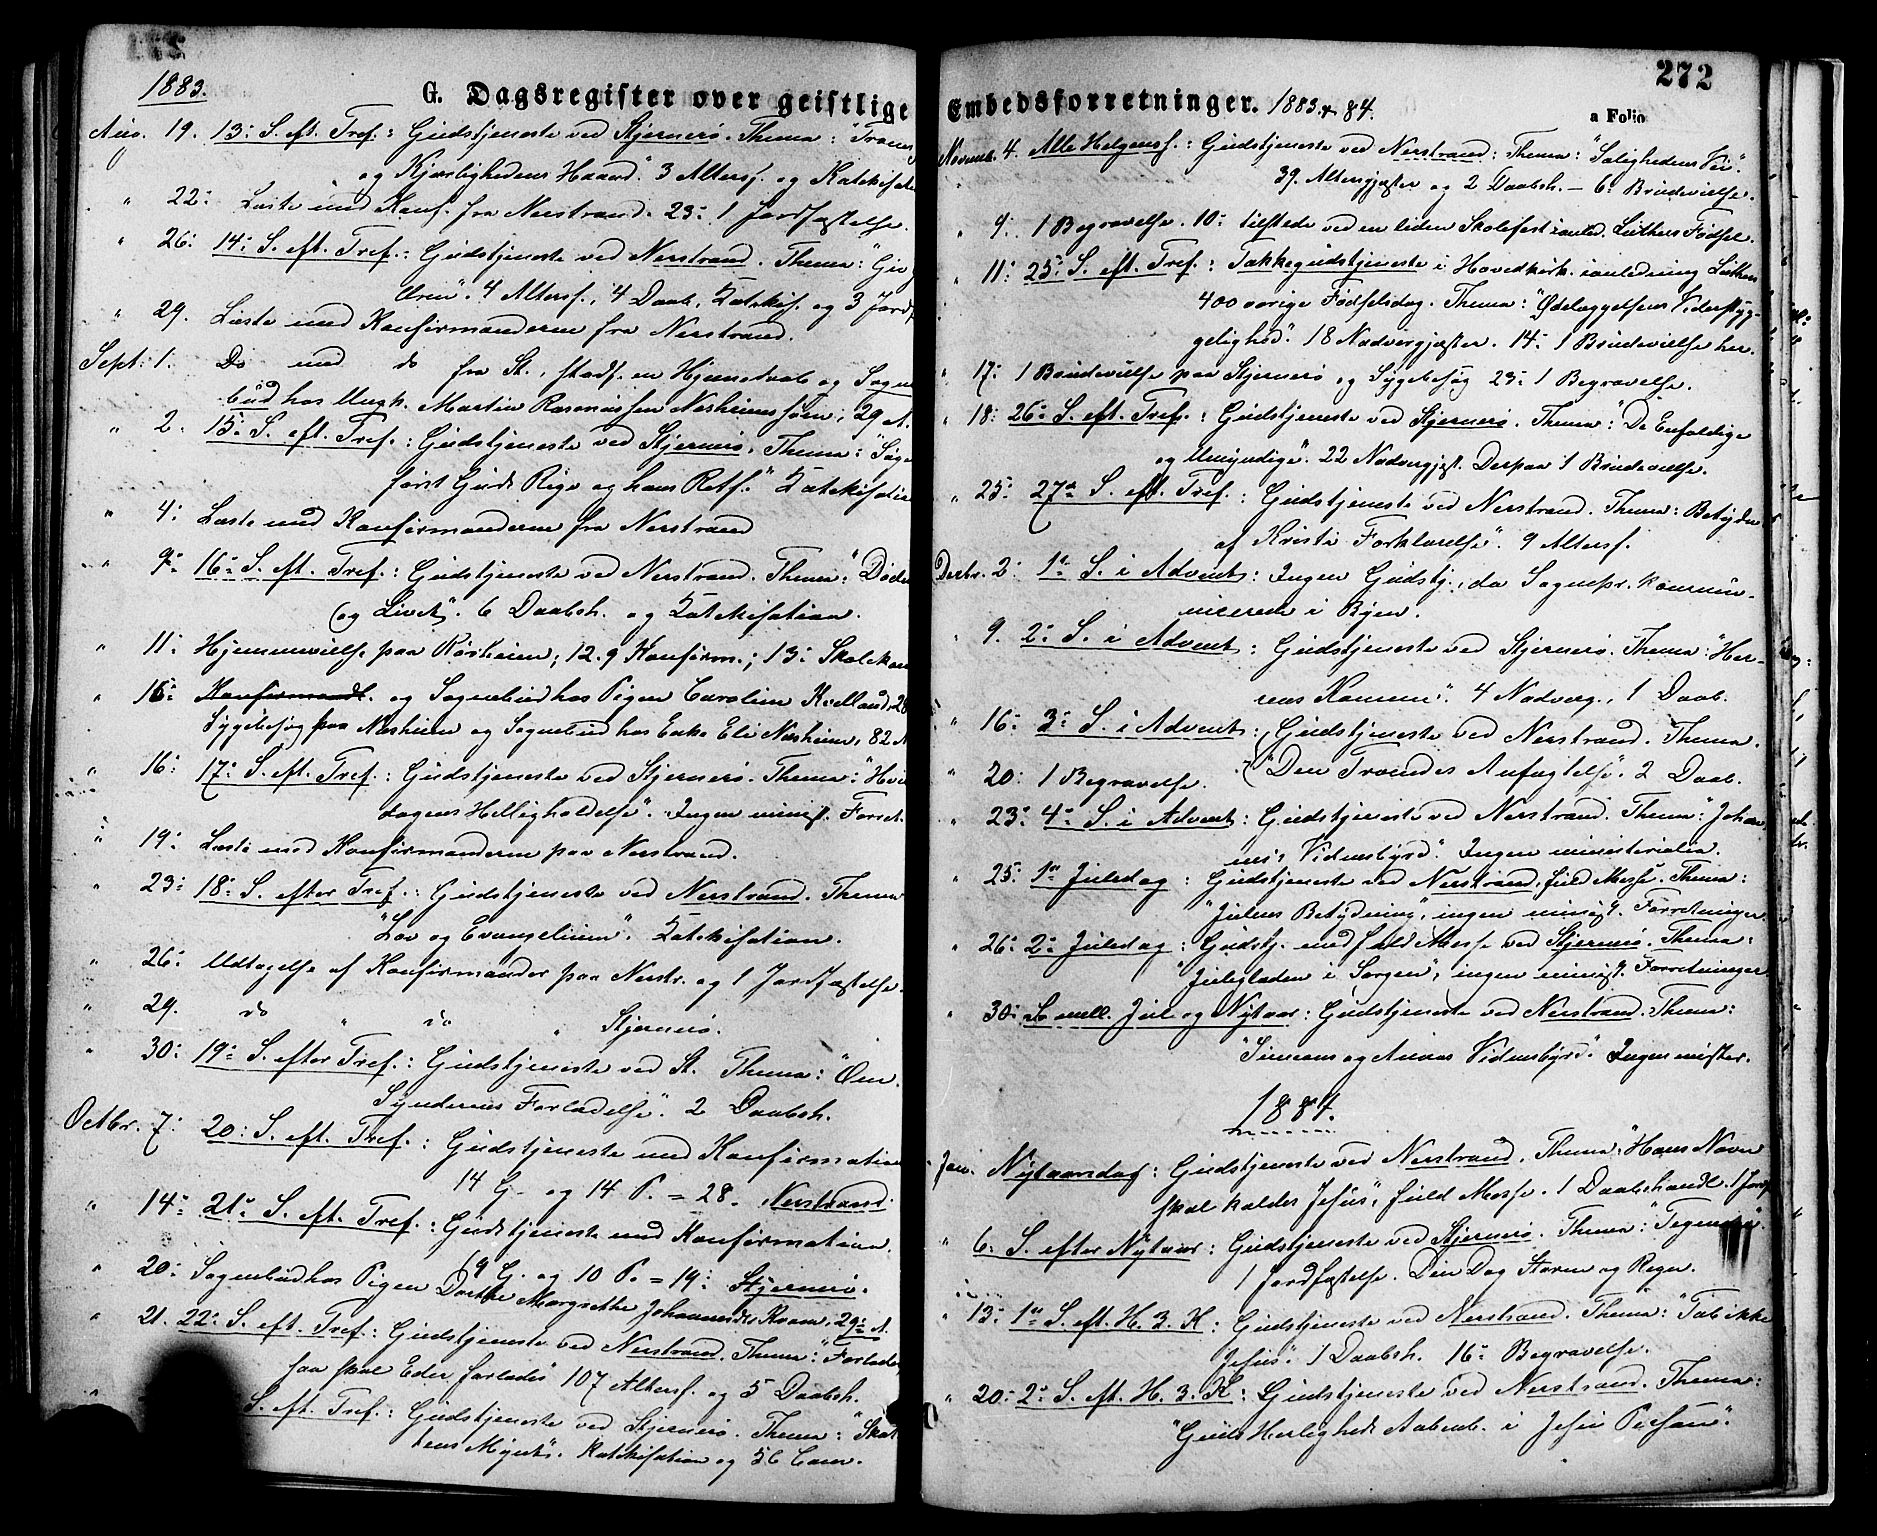 1883.
G. Dagsregister over geistlige
Aug. 19. 13: S. eft. Tref.: Gudstjeneste ved Stjernerø. Thema: "Troens
og Kjærlighedens Haand". 3 Altersf. og Katekisation
" 22: Læste med Konf. fra Nerstrand. 23: 1 Jordfæstelse.
" 26: 14: S. eft. Tref.: Gudstjeneste ved Nerstrand. Thema: "Giv
Æren". 4 Altersf., 4 Daab, Katekis. og 3 Jordf.
" 29. Læste med Konfirmanderne fra Nerstrand.
Sept: 1. Do med do fra St., stadf. en Hjemmedaab og Sogne
bud hos Ungk. Martin Rasmussen Nesheims søn, 29 A.
" 2. 15: S. eft. Tref.: Gudstjeneste ved Stjernerø. Thema: "Søger
først Guds Rige og hans Retf." Katekisation
" 4: Læste med Konfirmanderne fra Nerstrand
" 9: 16: S. eft. Tref.: Gudstjeneste ved Nerstrand. Thema: "Døden
og Livet". 6 Daabsh. og Katekisation.
" 11: Hjemmevielse paa; 12. 9 Konfirm.; 13: Skolekom
" 15: Konfirmandl. og Sognebud hos Pigen Caroline Kvelland, 28
Sygebesøg paa Nesheim og Sognebud hos Enke Eli Nesheim, 82 A
" 16: 17: S. eft. Tref.: Gudstjeneste ved Stjernerø. Thema: "Hvile
dagens Helligholdelse". Ingen minist. Forret.
" 19: Læste med Konfirmanderne paa Nerstrand.
" 23: 18: S. efter Tref.: Gudstjeneste ved Nerstrand. Thema
"Lov og Evangelium". Katekisation.
" 26: Udtagelse af Konfirmander paa Nerstr. og 1 Jordfæstelse.
" 29. do " do " Stjernerø.
" 30: 19: S. efter Tref.: Gudstjeneste ved St. Thema: "Om
Syndernes Forladelse". 2 Daabsh.
Octbr. 7: 20: S. eft. Tref.: Gudstjeneste med Konfirmation
14 G. og 14 P. = 28. Nerstrand.
" 14: 21: S. eft. Tref.: Gudstjeneste med Konfirmation.
9 G. og 10 P. = 19: Stjernerø.
" 20: Sognebud hos Pigen Dorthe Margrethe Johannesdr Kvam, 29: A.
" 21. 22: S. eft. Tref.: Gudstjeneste ved Nerstrand. Thema: "Forlader,
saa skal Eder forlades 107 Altersf. og 5 Daabsh.
" S. eft. Tref.: Gudstjeneste ved Stjernerø. Thema: "Skat
tens Mynt". Katekisation og 56 Com.
272
Embedsforretninger. 1883 & 84.
a Folio
Novemb. 4. Alle Helgensf.: Gudstjeneste ved Nerstrand: Thema: "Salighedens Vei".
39. Altergjæster og 2 Daabsh. – 6: Brudevielse.
" 9: 1 Begravelse. 10: tilstede ved en liden Skolefest i anled. Luthers Fødsel.
" 11: 25: S. eft. Tref.: Takkegudstjeneste i Hovedkirk. i anledning Luthers
400 aarige Fødselsdag. Thema: "Ødelæggelsens Vederstyg-
gelighed". 18 Nadvergjæster. 14: 1 Brudevielse her.
" 17: 1 Brudevielse paa Stjernerø og Sygebesøg 23: 1 Begravelse.
" 18: 26: S. eft. Tref.: Gudstjeneste ved Stjernerø. Thema: "De Enfoldige
og Umyndige". 22 Nadvergjæst. Derpaa 1 Brudevielse.
" 25: 27de S. eft. Tref.: Gudstjeneste ved Nerstrand. Thema: Betydn
af Kristi Forklarelse". 9 Altersf.
Decbr. 2: 1ste S. i Advent: Ingen Gudstj., da Sognepr. kommun-
icerede i Byen.
" 9. 2: S. i Advent: Gudstjeneste ved Stjernerø. Thema: "Her-
rens Komme". 4 Nadverg., 1 Daab.
" 16: 3: S. i Advent: Gudstjeneste ved Nerstrand. Thema.
"Den Troendes Anfægtelse". 2 Daab.
" 20: 1 Begravelse.
" 23: 4: S. i Advent: Gudstjeneste ved Nerstrand. Thema: "Johan
nes Vidnesbyrd". Ingen ministerialia.
" 25: 1ste Juledag: Gudstjeneste ved Nerstrand, fuld Messe. Thema:
"Julens Betydning", ingen minist. Forretninger.
" 26: 2: Juledag: Gudstj. med fuld Messe ved Stjernerø. Thema:
"Juleglæden i Sorgen", ingen minist. Forretninger.
" 30: S. mell. Jul og Nytaar: Gudstjeneste ved Nerstrand. Thema:
"Simeons og Annas Vidnesbyrd." Ingen minister.
1884.
Jan. Nytaarsdag: Gudstjeneste ved Nerstrand. Thema: "Hans Navn
skal kaldes Jesus", fuld Messe. 1 Daabshandl. 1 Jordf
" 6: S. efter Nytaar: Gudstjeneste ved Stjernerø. Thema:
1 Jordfæstelse. Den Dag Storm og Regn.
" 13: 1ste S. eft. H. 3. K: Gudstjeneste ved Nerstrand. Thema: "Tab ikke
Jesus". 1 Daabsh. 16: Begravelse.
" 20: 2: S. eft. H. 3. K: Gudstjeneste ved Nerstrand. Thema:
"Guds Herligheds Aabenb. i Jesu Person".